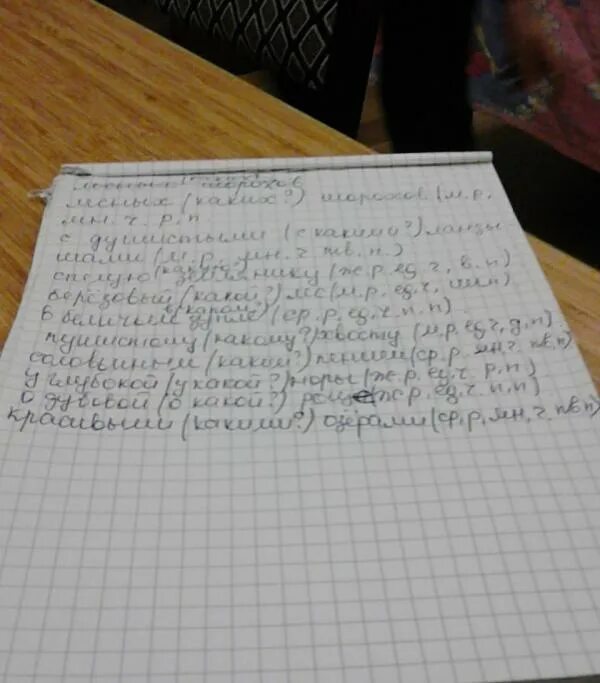 лесных шорохов
лесных (каких?) шорохов (м.р,
мн. ч. р.п
с душистыми (с какими?) ланды
шами (м.р., мн.ч тв.п.)
спелую (какую?) землянику (ж.р. ед.ч, в.п)
берёзовый (какой?) лес (м.р, ед.ч, им.п)
в беличьем (в каком?) дупле (ср.р, ед.ч. п.п)
пушистому (какому?) хвосту (м.р, ед.ч, д.п)
соловьиным (каким?) пением (ср.р. мн.ч. тв.п)
у глубокой (у какой?) норы (ж.р. ед.ч. р.п)
о дубовой (о какой?) роще ж.р, ед.ч. п.п)
красивыми (какими?) озёрами (ср.р, мн.ч. тв.п)